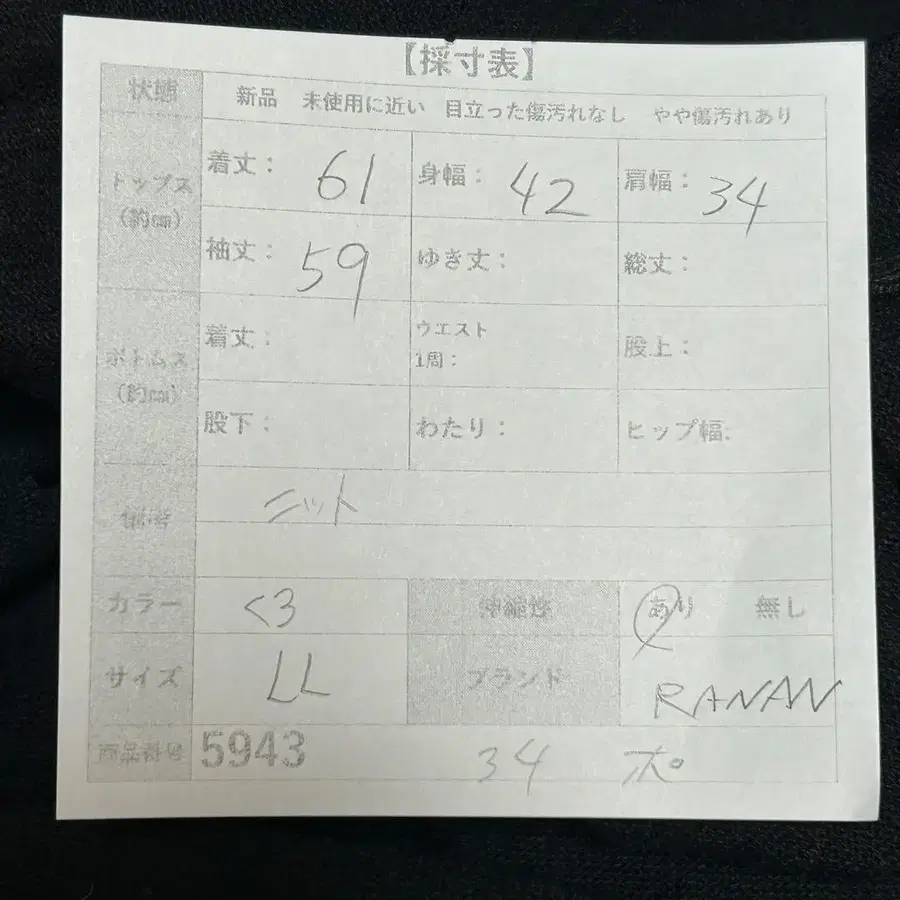 【採寸表】
状態 新品 未使用に近い 目立った傷汚れなし やや傷汚れあり
トップス (約cm) 着丈: 61 身幅: 42 肩幅: 34
袖丈: 59 ゆき丈: 総丈:
ボトムス (約cm) 着丈: ウエスト 1周: 股上:
股下: わたり: ヒップ幅:
備考 ニット
カラー くろ 伸縮性 あり 無し
サイズ LL ブランド RANAN
商品番号 5943 34 ポ